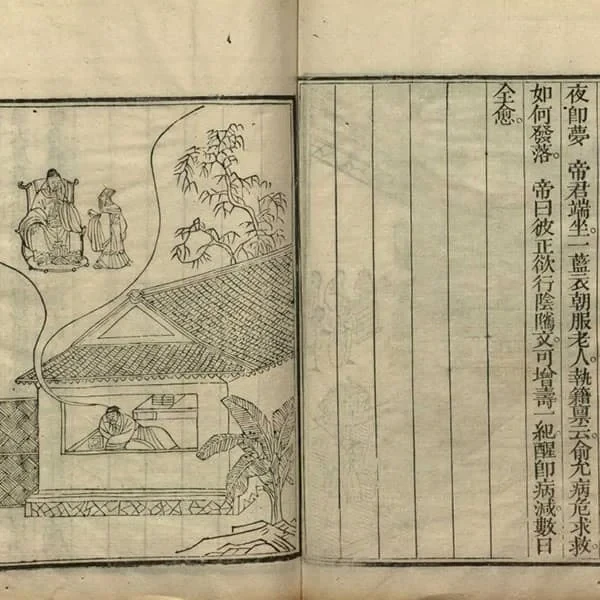 夜卽夢　帝君端坐。一藍衣朝服老人。執籍禀云。俞允病危求救。
如何發落。　帝曰彼正欲行陰隲文。可增壽一紀。醒卽病減。數日
全愈。